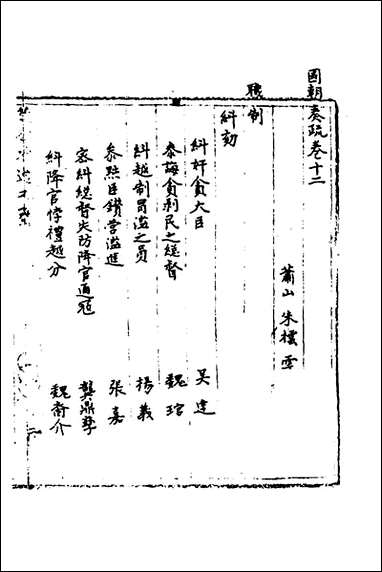 國朝奏疏卷十二
蕭山 朱櫄 雲
職制
糾劾
糾奸貪大臣 吴達
恭誨貪利民之總督 魏琯
糾越制冒濫之員 楊義
參黜臣鑽營濫進 張嘉
密糾總督失防降官通冠 龔鼎孳
糾降官悖禮越分 魏裔介